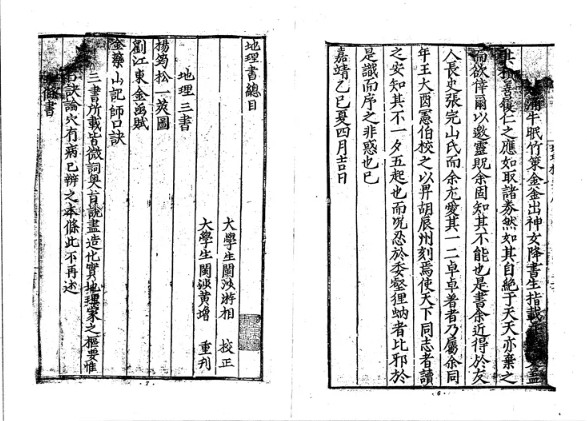 牛眠竹策金釜出神女降書生指識
善復仁之應如取諸券然如其自絕于天天亦棄之
而欲倖爾以邀靈貺余固知其不能也是書余近得於友
人長史張完山氏而余尤愛其一二卓卓著者乃屬余同
年王大酉憲伯校之以畀胡辰州刻焉使天下同志者讀
之安知其不一夕五起也而況忍於委壑狸蚋者比邪於
是識而序之非惑也已
嘉靖乙巳夏四月吉日
·6·
地理書總目
大學生閩游相 校正
大學生閩黃增 重刊
地理三書
楊筠松一莢圖
劉江東金函賦
金蘂山記師口訣
三書所載皆微詞奧旨說盡造化實地理家之樞要惟
口訣論穴有病已辨之本條此不再述
條書
·7·